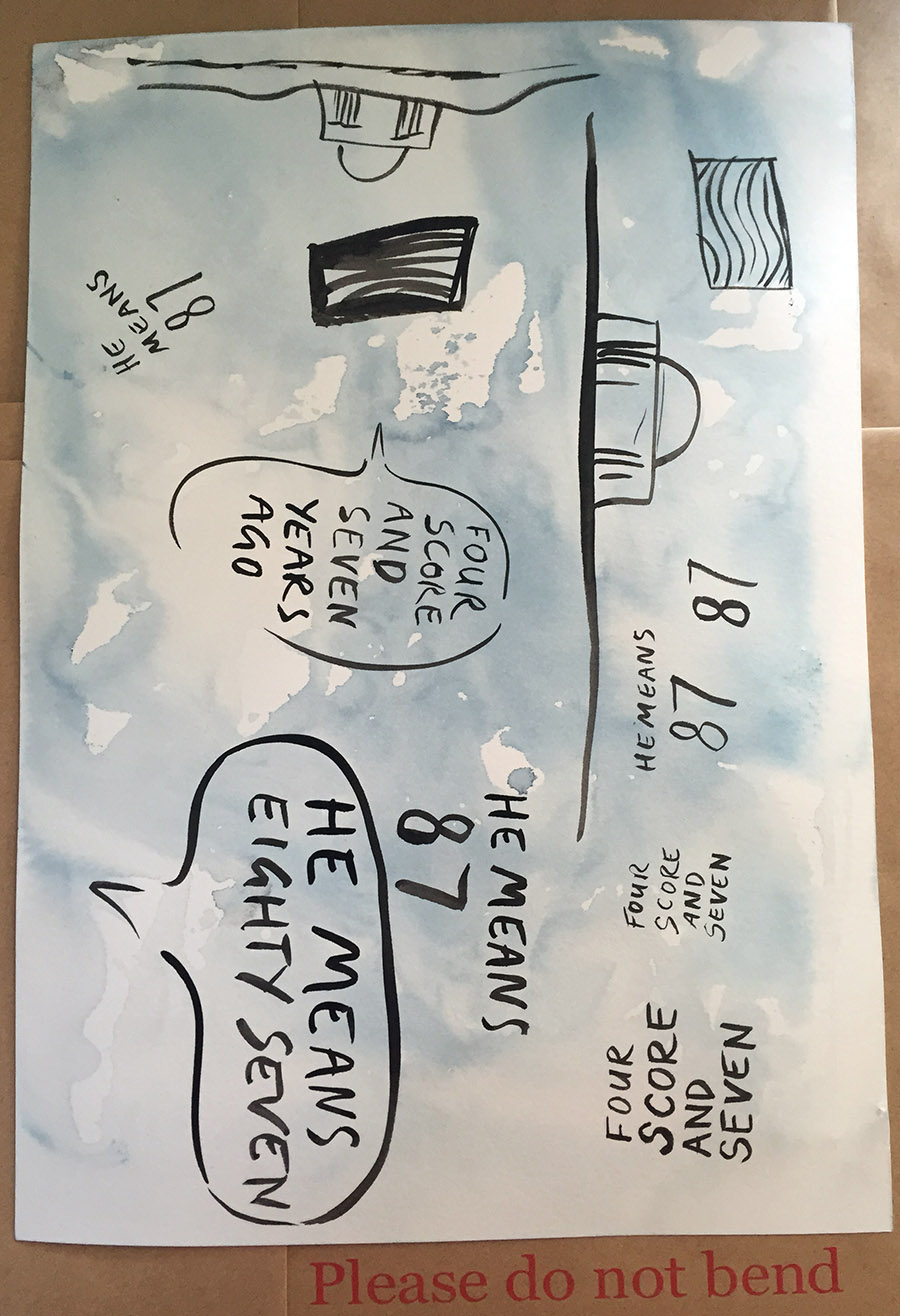 HE
MEANS
87
FOUR
SCORE
AND
SEVEN
YEARS
AGO
HE MEANS
87
87
HE MEANS
87
HE MEANS
EIGHTY SEVEN
FOUR
SCORE
AND
SEVEN
FOUR
SCORE
AND
SEVEN
Please do not bend